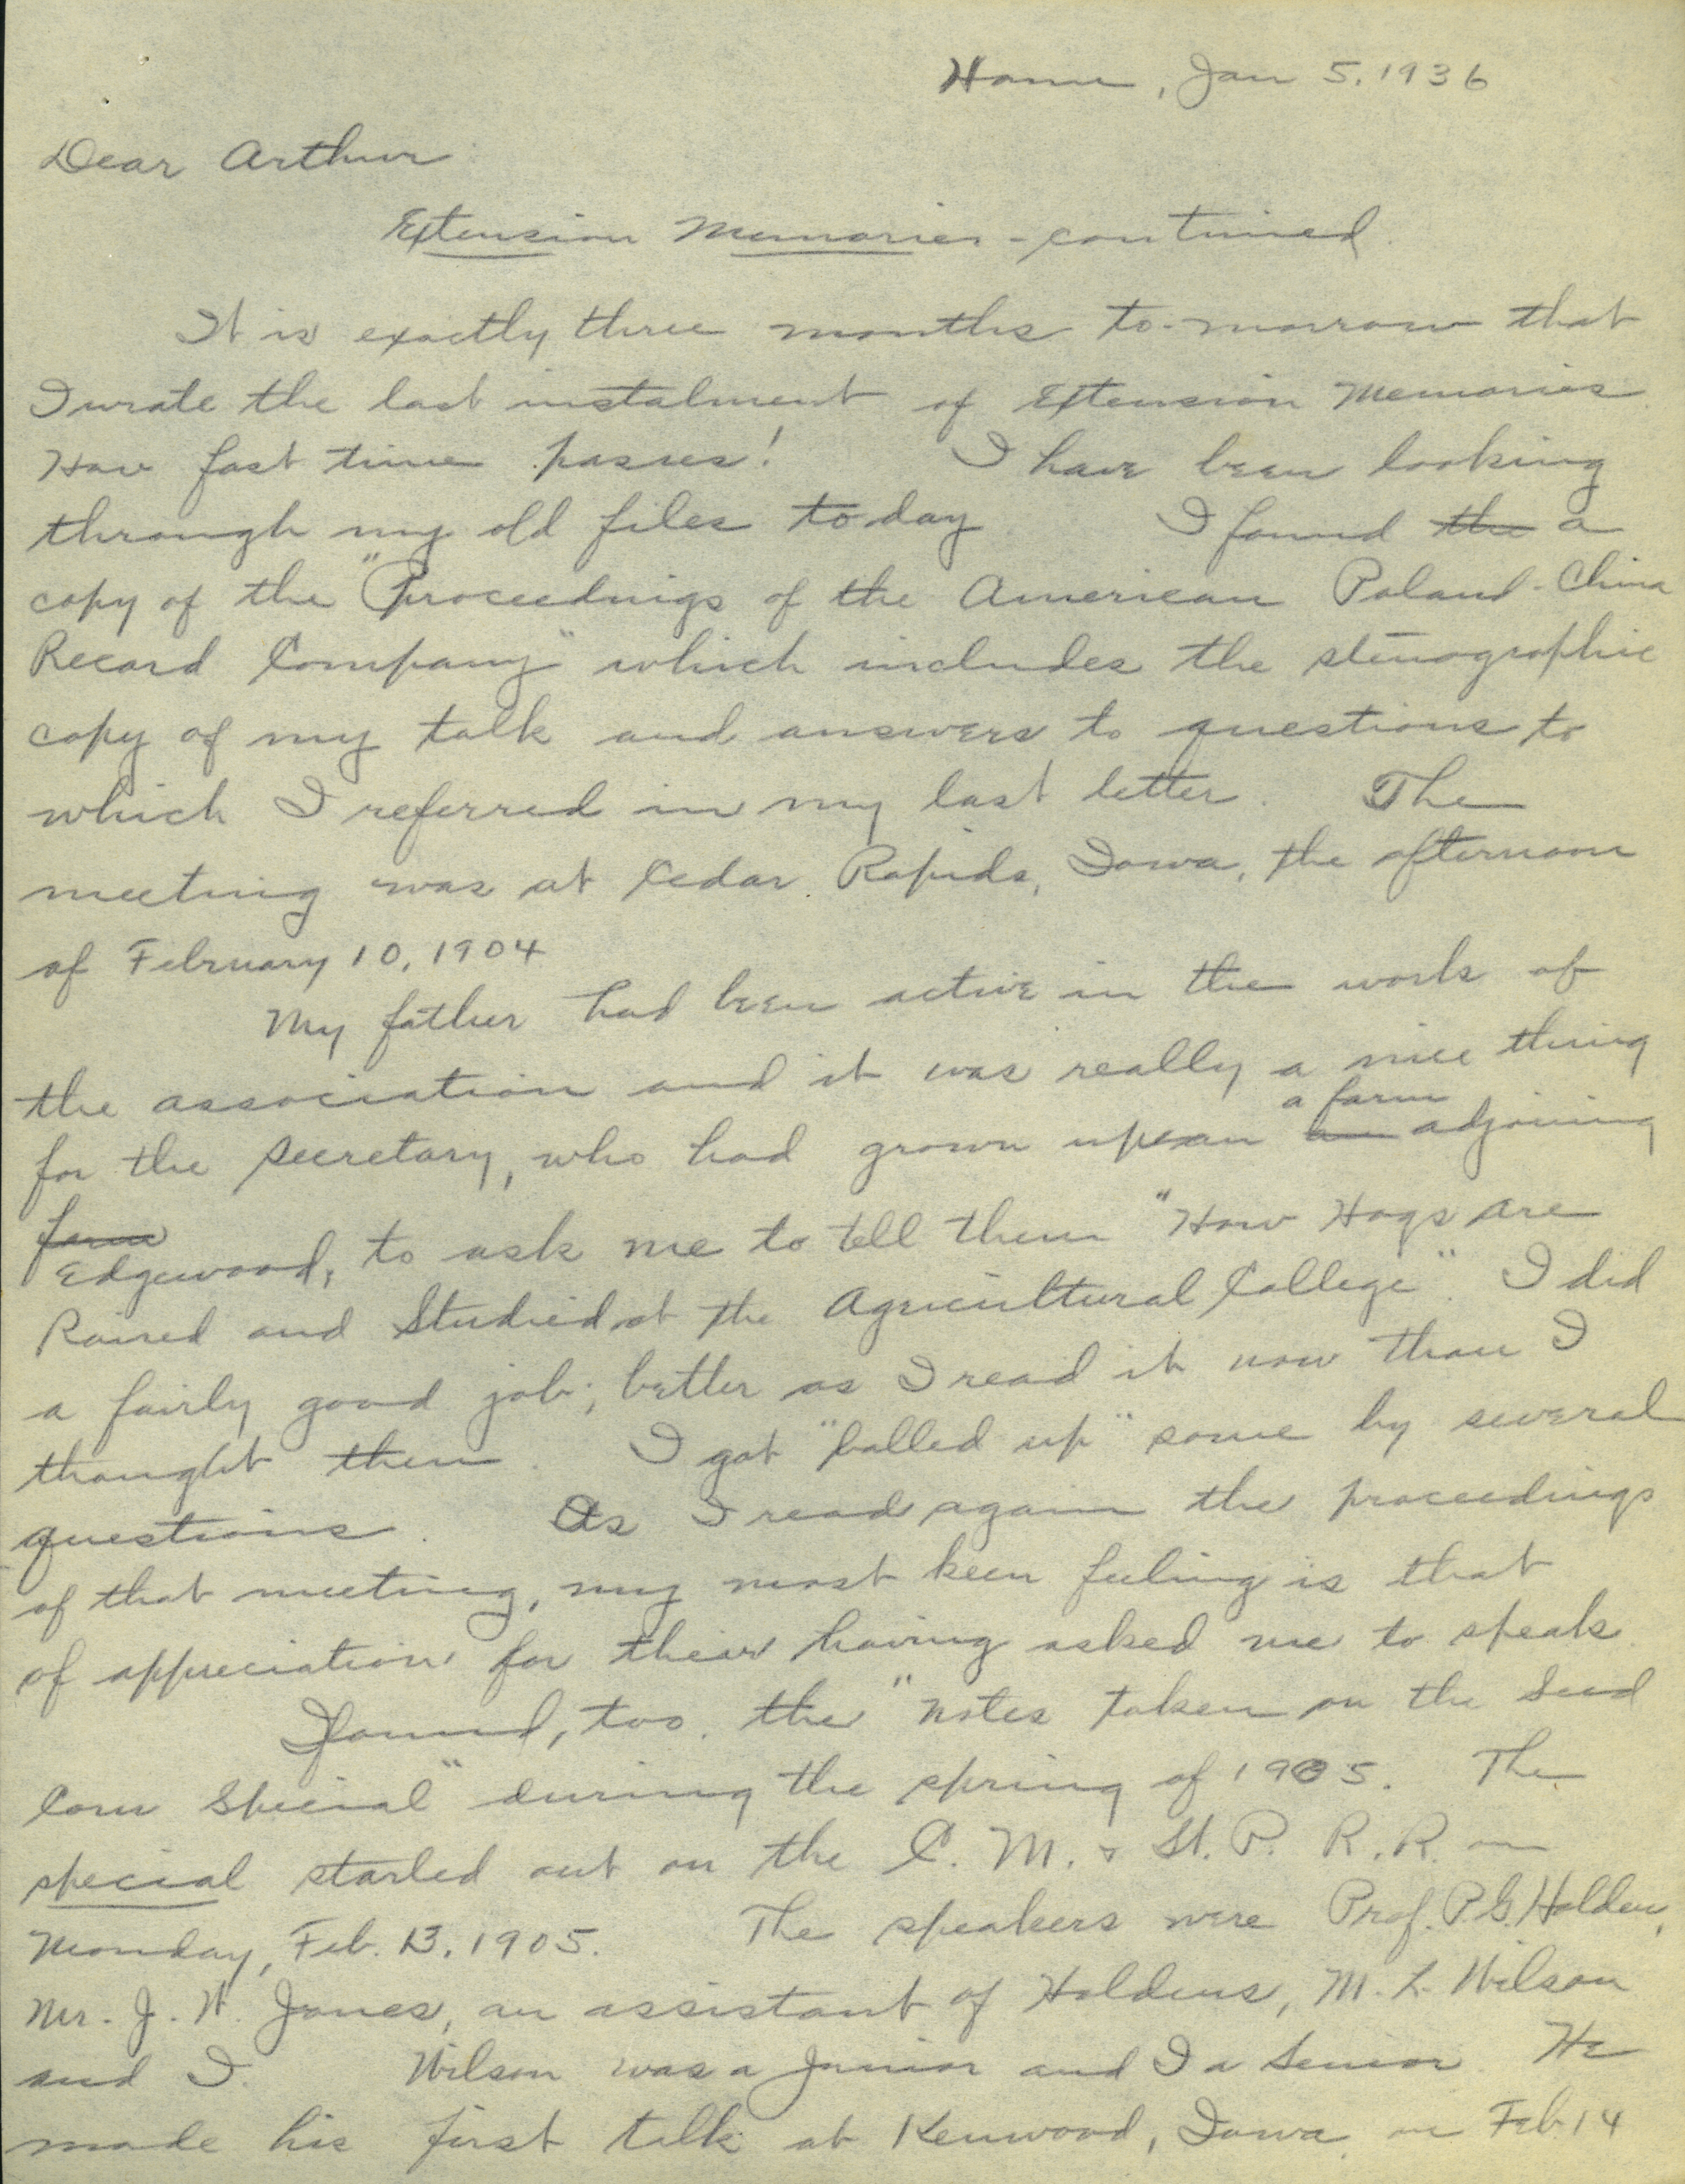 Home, Jan 5. 1936
Dear Arthur
Extension Memories - continued.
It is exactly three months to-morrow that
I wrote the last instalment of Extension Memories.
How fast time passes! I have been looking
through my old files to day I found the a
copy of the "Proceedings of the American Poland-China
Record Company" which includes the stenographic
copy of my talk and answers to questions to
which I referred in my last letter. The
meeting was at Cedar Rapids, Iowa, the afternoon
of February 10, 1904
My father had been active in the work of
the association and it was really a nice thing
a farm
for the secretary, who had grown up on an adjoining
farm
Edgewood, to ask me to tell them "How Hogs are
Raised and Studied at the Agricultural College". I did
a fairly good job; better as I read it now than I
thought then. I got "balled up" some by several
questions. As I read again the proceedings
of that meeting, my most keen feeling is that
of appreciation for their having asked me to speak.
I found, too, the "notes taken on the Seed
Corn Special" during the spring of 1905. The
special started out on the C. M. & St. P. R. R. on
Monday, Feb. 13, 1905. The speakers were Prof. P. G. Holden,
Mr. J. W. Jones, an assistant of Holdens, M. L. Wilson
and I. Wilson was a Junior and I a Senior. He
made his first talk at Kenwood, Iowa on Feb. 14